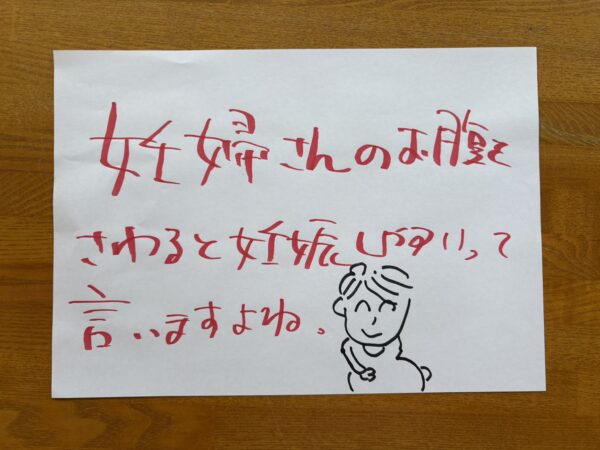 妊婦さんのお腹を
さわると妊娠しやすいって
言いますよね。